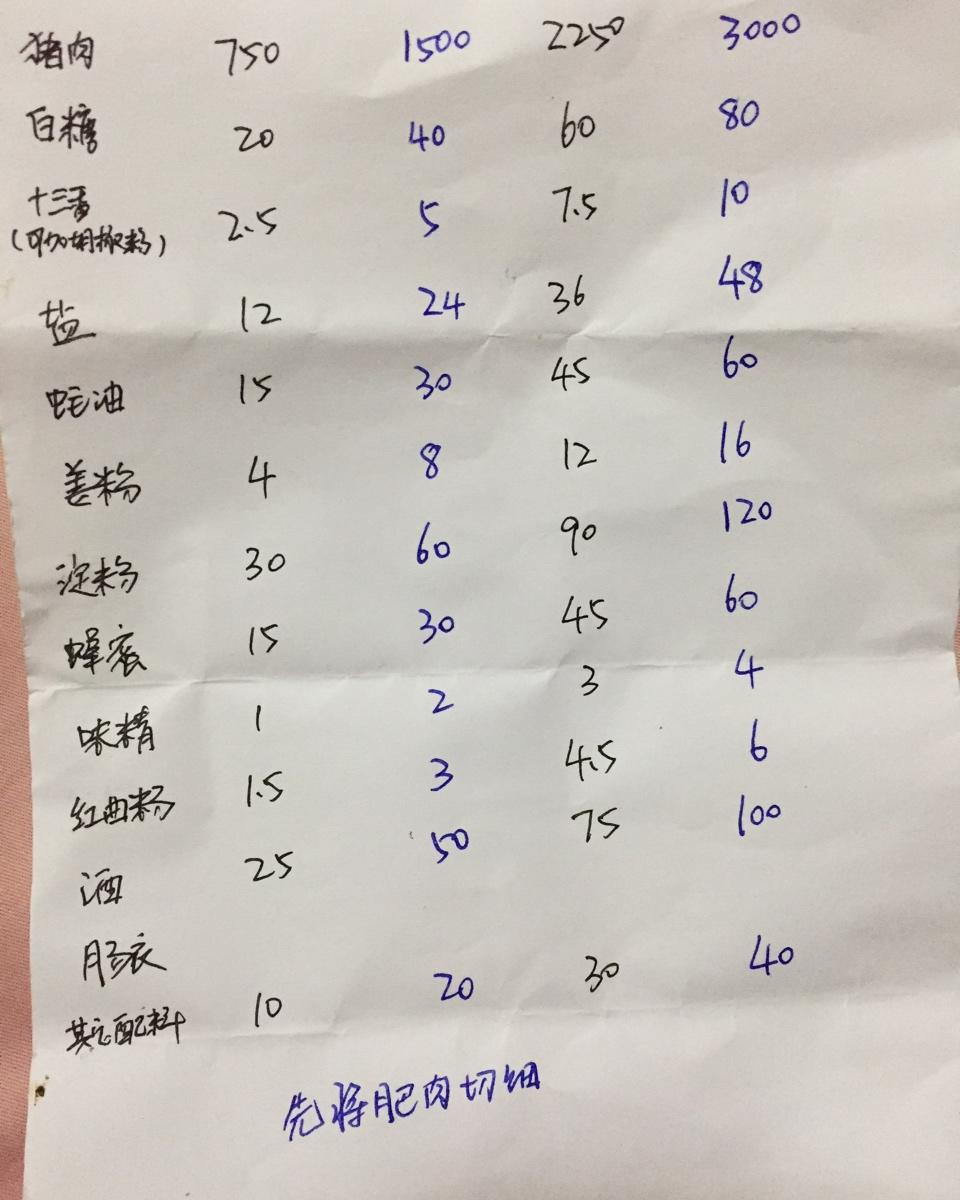 猪肉 750 1500 2250 3000
白糖 20 40 60 80
十三香 2.5 5 7.5 10
(可加胡椒粉)
盐 12 24 36 48
蚝油 15 30 45 60
姜粉 4 8 12 16
淀粉 30 60 90 120
蜂蜜 15 30 45 60
味精 1 2 3 4
红曲粉 1.5 3 4.5 6
酒 25 50 75 100
肠衣
其它配料 10 20 30 40
先将肥肉切细